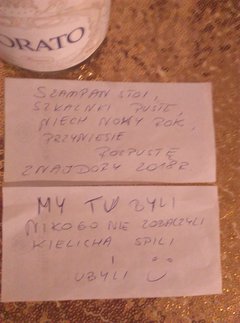 ORATO
SZAMPAN STOI,
SZKLANKI PUSTE,
NIECH NOWY ROK,
PRZYNIESIE
ROZPUSTĘ
2018R
MY TU BYLI
NIKOGO NIE ZOBACZYLI
KIELICHA SPILI
I
UBYLI